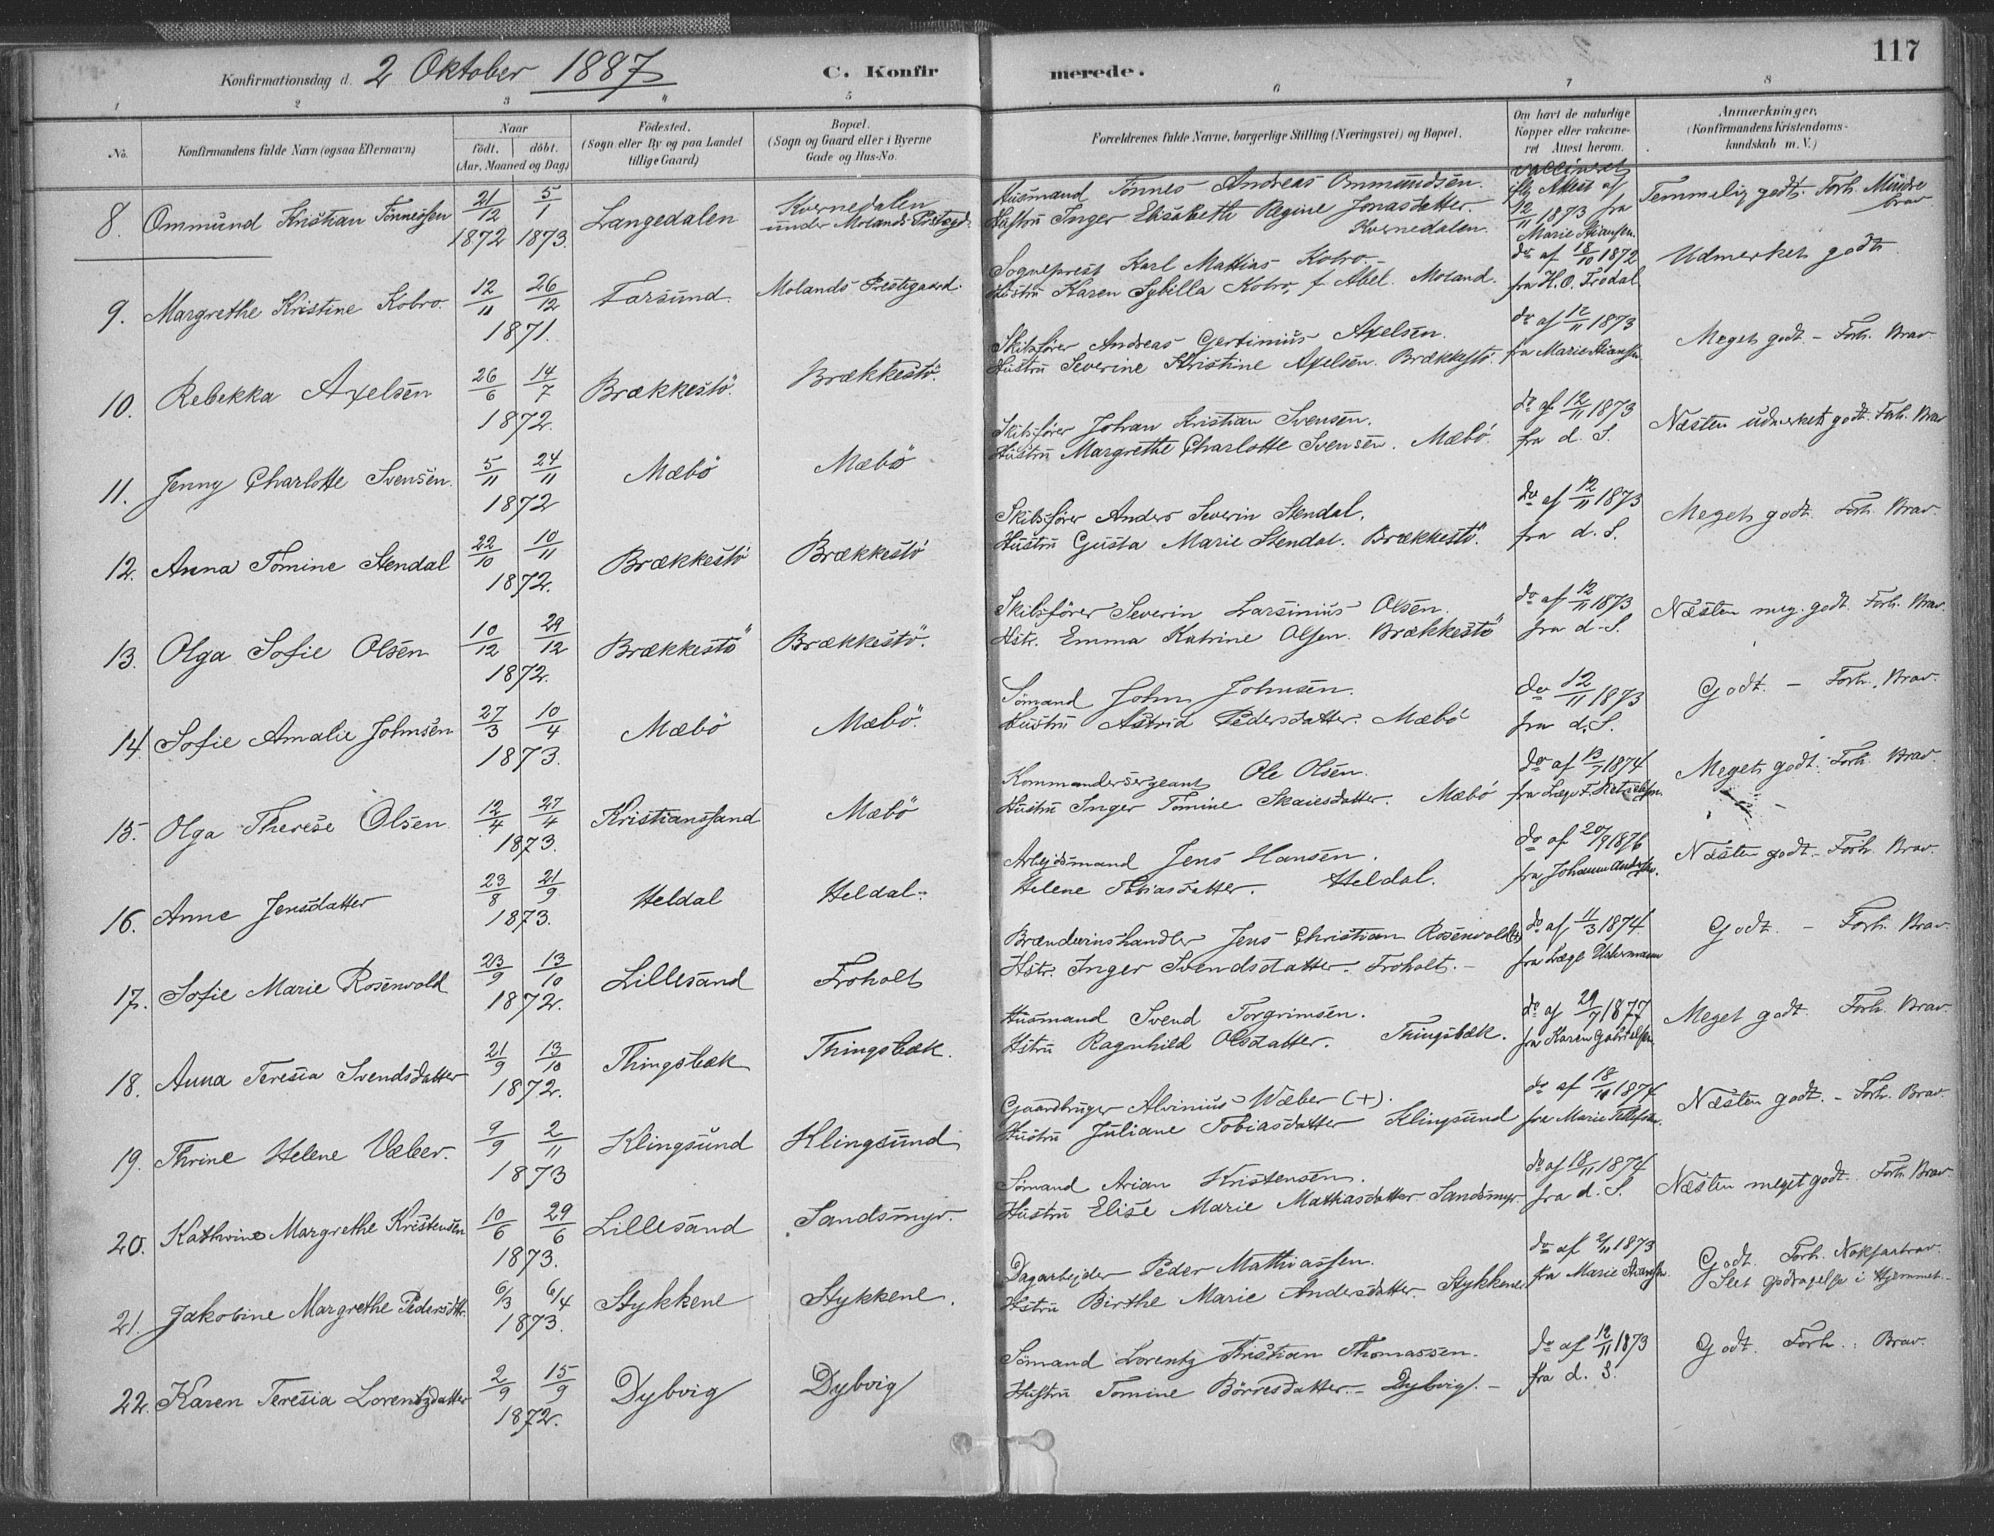 117
Konfirmationsdag d. 2 Oktober 1887
C. Konfirmerede.
1 2 3 4 5 6 7 8
No.
Konfirmandens fulde Navn (ogsaa Efternavn)
Naar
født. døbt.
(Aar, Maaned og Dag)
Fødested.
(Sogn eller By og paa Landet
tillige Gaard)
Bopæl.
(Sogn og Gaard eller i Byerne
Gade og Hus-No.
Forældrenes fulde Navne, borgerlige Stilling (Næringsvei) og Bopæl.
Om havt de naturlige
Kopper eller vakcine-
ret Attest herom.
Anmærkninger.
(Konfirmandens Kristendoms-
kundskab m. V.)
8. Ommund Kristian Tønnessen 21/12 1872 5/1 1873. Langedalen
Kvernedalen
under Molands Præstegd.
Husmand Tønnes Andreas Ommundsen.
Hustru Inger Elisabeth Regine Jonasdatter.
Kvernedalen.
vaccineret
iflg Attest af
12/11 1873 fra
Marie Stiansen.
Temmelig godt. Forh. Mindre
brav
9. Margrethe Kristine Kobro. 12/11 26/12 1871. Farsund. Molands Præstegaard.
Sogneprest Karl Mattias Kobro.
Hustru Karen Sybilla Kobro, f. Abel. Moland.
do af 18/10 1872
fra H. O. Frodal
Udmerket godt
10. Rebekka Axelsen 26/6 14/7 1872. Brækkestö. Brækkestö.
Skibsfører Andreas Gertinius Axelsen.
Hustru Severine Kristine Axelsen. Brækkestö.
do af 12/11 1873
fra Marie Stiansen
Meget godt - Forh. Brav.
11. Jenny Charlotte Svensen. 5/11 24/11 1872 Mæbö Mæbö
Skibsfører Johan Kristian Svensen.
Hustru Margrethe Charlotte Svensen. Mæbö.
do af 12/11 1873
fra d. S.
Næsten udmerket godt. Forh. Brav
12. Anna Tomine Stendal 22/10 10/11 1872. Brækkestö Brækkestö
Skibsfører Anders Severin Stendal.
Hustru Gusta Marie Stendal. Brækkestö.
do af 12/11 1873
fra d. S.
Meget godt. Forh. Brav.
13. Olga Sofie Olsen 10/12 29/12 1872. Brækkestö Brækkestö.
Skibsfører Severin Larsinius Olsen.
Hstr. Emma Katrine Olsen. Brækkestö
do af 12/11 1873
fra d. S.
Næsten meg. godt. Forh. Brav.
14. Sofie Amalie Johnsen 27/3 10/4 1873. Mæbö Mæbö.
Sømand John Johnsen.
Hustru Astrid Pedersdatter. Mæbö
do 12/11 1873
fra d. S.
Godt. - Forh. Brav.
15. Olga Therese Olsen 12/4 27/4 1873. Kristianssand Mæbö
Kommandersergeant Ole Olsen.
Hustru Inger Tomine Skaiesdatter. Mæbö
do af 13/7 1874
fra Læge F.
Meget godt. Forh. Brav.
16. Anne Jensdatter 23/8 21/9 1873. Heldal Heldal.
Arbejdsmand Jens Hansen.
Helene Tobiasdatter. Heldal.
do af 20/9 1876
fra Johanne
Næsten godt. - Forh. Brav.
17. Sofie Marie Rosenvold 23/9 13/10 1872. Lillesand Froholt
Brændevinshandler Jens Christian Rosenvold (+)
Hstr. Inger Svendsdatter. Froholt. -
do af 11/3 1874.
fra Læge
Godt. - Forh. Brav.
18. Anna Teresia Svendsdatter 21/9 13/10 1872. Thingsbæk Thingsbæk.
Husmand Svend Torgrimsen.
Hstru Ragnhild Olsdatter. Thingsbæk.
do af 29/7 1877
fra Karen Gabrielsen
Meget godt. Forh. Brav.
19. Thrine Helene Væber. 9/9 2/11 1873 Klingsund Klingsund
Gaardbruger Alvinius Wæber (+).
Hustru Juliane Tobiasdatter Klingsund
do af 18/11 1874
fra Marie
Næsten godt. - Forh. Brav.
20. Kathrine Margrethe Kristensen 10/6 29/6 1873. Lillesand Sandsmyr.
Sømand Arian Kristensen.
Hustru Elise Marie Mathiasdatter Sandsmyr
do af 18/11 1874
fra d. S.
Næsten meget godt. Forh. Brav.
21. Jakobine Margrethe Pedersdtr. 6/3 6/4 1873. Stykkene Stykkene.
Dagarbejder Peder Mathiassen.
Hstru Birthe Marie Andersdatter. Stykkene
do af 2/11 1873
fra Marie Stiansen
Godt. Forh. Noksaabrav.
Slet i Hjemmet.
22. Karen Teresia Lorentzdatter 2/9 15/9 1872. Dybvig Dybvig
Sømand Lorentz Kristian Thomassen.
Hustru Tomine Börresdatter. - Dybvig. -
do af 12/11 1873
fra d. S.
Godt. Forh.: Brav.